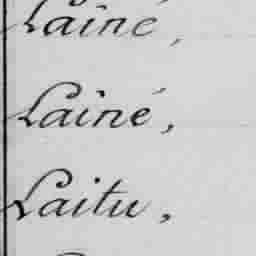 Lainé,
Lainé,
Laitu,